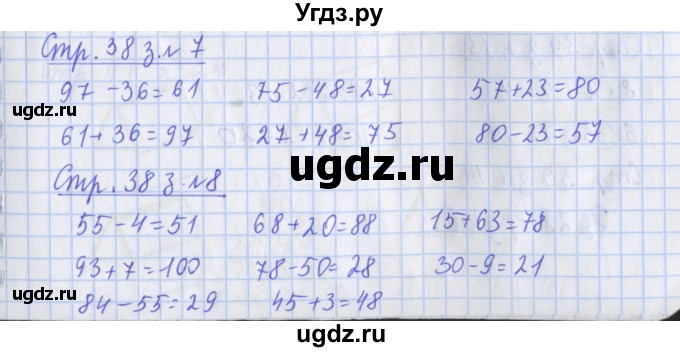 Угдз.ру
Стр. 38 з. № 7
97 - 36 = 61 75 - 48 = 27 57 + 23 = 80
61 + 36 = 97 27 + 48 = 75 80 - 23 = 57
Стр. 38 з. № 8
55 - 4 = 51 68 + 20 = 88 15 + 63 = 78
93 + 7 = 100 78 - 50 = 28 30 - 9 = 21
84 - 55 = 29 45 + 3 = 48
ugdz.ru
ugdz.ru
ugdz.ru
ugdz.ru
ugdz.ru
ugdz.ru
ugdz.ru